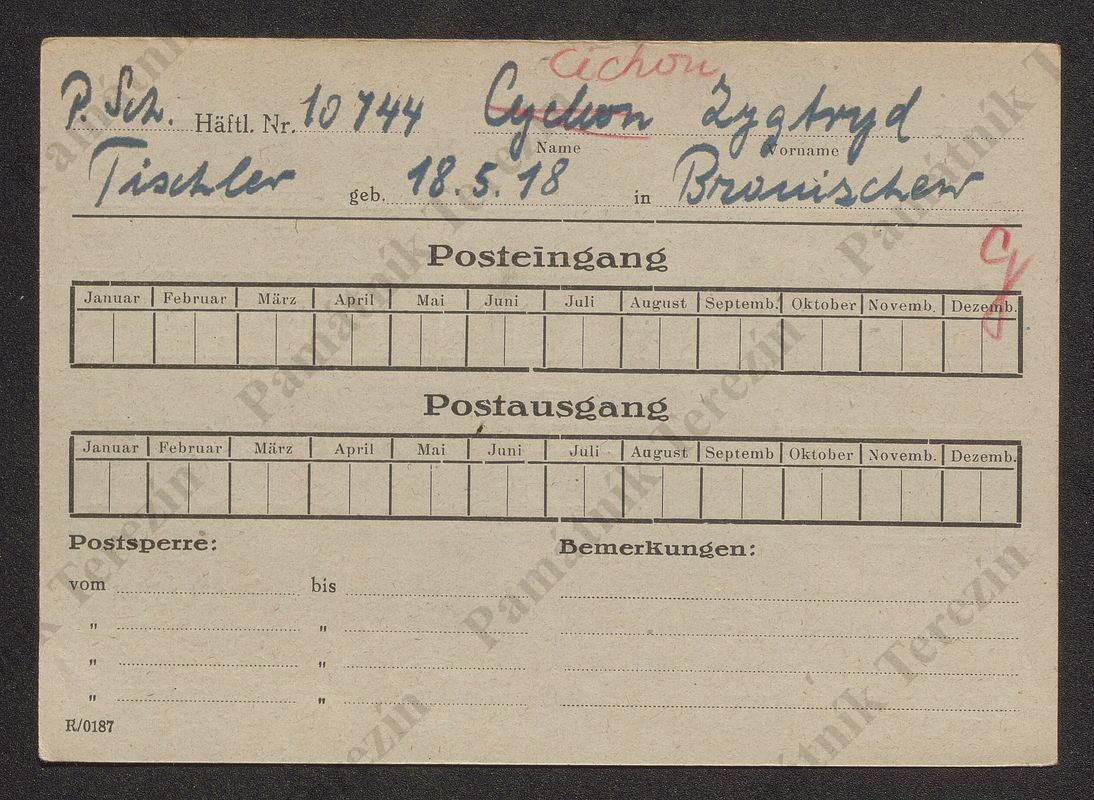 Cichon
P. Sch. Häftl. Nr. 10744 Cychon Zygtryd
Name Vorname
Tischler geb. 18.5.18 in Bronischew
Posteingang
Januar Februar März April Mai Juni Juli August Septemb. Oktober Novemb. Dezemb.
Postausgang
Januar Februar März April Mai Juni Juli August Septemb Oktober Novemb. Dezemb.
Postsperre: Bemerkungen:
vom bis
" "
" "
" "
R/0187
Památník Terezín